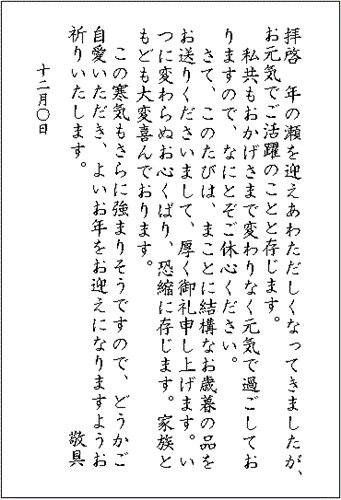 拝啓　年の瀬を迎えあわただしくなってきましたが、
お元気でご活躍のことと存じます。
　私共もおかげさまで変わりなく元気で過ごしてお
りますので、なにとぞご休心ください。
　さて、このたびは、まことに結構なお歳暮の品を
お送りくださいまして、厚く御礼申し上げます。い
つに変わらぬお心くばり、恐縮に存じます。家族と
もども大変喜んでおります。
　この寒気もさらに強まりそうですので、どうかご
自愛いただき、よいお年をお迎えになりますようお
祈りいたします。
敬具
十二月〇日